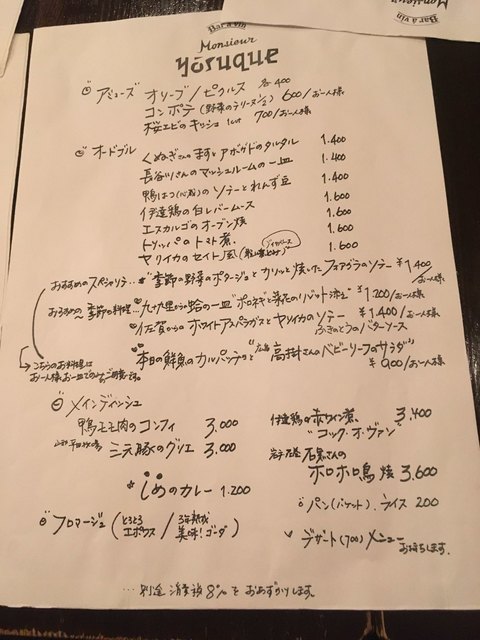 Bar à vin
Monsieur
yoruque
Bar à vin
Monsieur
アミューズ オリーブ/ピクルス 各400
コンポテ(野菜のテリーヌ) 600/お一人様
桜エビのキッシュ 1cut 700/お一人様
オードブル くぬぎさんのますとアボガドのタルタル 1.400
長谷川さんのマッシュルームの一皿 1.400
鴨はつ(心ぞう)のソテーとれんず豆 1.400
伊達鶏の白レバームース 1.600
エスカルゴのオーブン焼 1.600
トリッパのトマト煮 1.600
ヤリイカのセイト風 1.600
おすすめのスペシャリテ… "季節の野菜のポタージュとカリッと焼いたフォアグラのソテー ¥1,400/お一人様
おすすめ〜季節の料理… 九十九里からの蛤の一皿 ¥1.200/お一人様
佐賀からのホワイトアスパラガスとヤリイカのソテー ¥1,400/お一人様
ふきのとうのバターソース
本日の鮮魚のカルパッチョと"広島高掛さんのベビーリーフのサラダ"
¥900/お一人様
こちらのお料理は
お一人様お一皿でのご用意です。
メインディッシュ
鴨モモ肉のコンフィ 3,000
三元豚のグリエ 3,000
〆のカレー 1.200
伊達鶏の赤ワイン煮 3,400
"コック・オ・ヴァン"
岩手 石黒さんの
ホロホロ鳥 焼 3,600
パン(バケット)、ライス 200
フロマージュ (とろとろエポワス / 3年熟成 美味!ゴーダ)
デザート(700)メニュー
お持ちします。
…別途 消費税8%をおあずかりします。